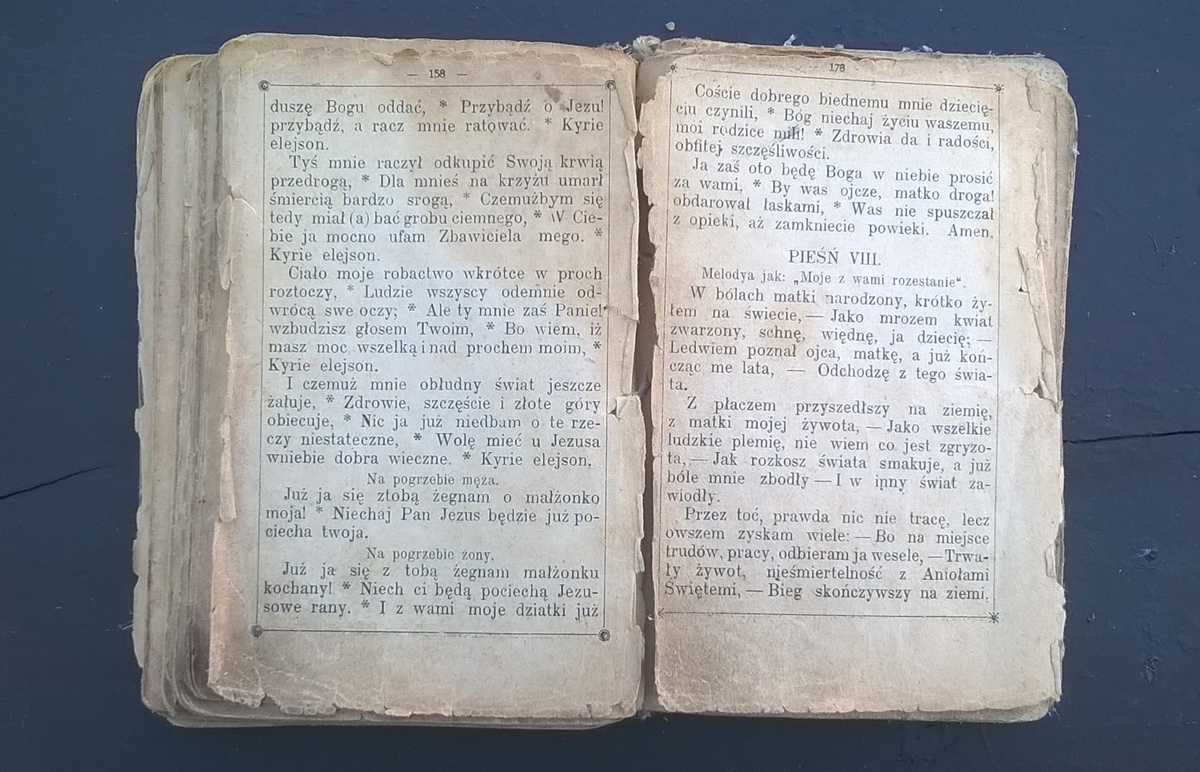 — 158 —
duszę Bogu oddać, * Przybądź o Jezu!
przybądź, a racz mnie ratować. * Kyrie
elejson.
Tyś mnie raczył odkupić Swoją krwią
przedrogą, * Dla mnieś na krzyżu umarł
śmiercią bardzo srogą, * Czemużbym się
tedy miał (a) bać grobu ciemnego, * W Cie-
bie ja mocno ufam Zbawiciela mego. *
Kyrie elejson.
Ciało moje robactwo wkrótce w proch
roztoczy, * Ludzie wszyscy odemnie od-
wrócą swe oczy; * Ale ty mnie zaś Panie!
wzbudzisz głosem Twoim, * Bo wiem, iż
masz moc wszelką i nad prochem moim, *
Kyrie elejson.
I czemuż mnie obłudny świat jeszcze
żałuje, * Zdrowie, szczęście i złote góry
obiecuje, * Nic ja już niedbam o te rze-
czy niestateczne, * Wolę mieć u Jezusa
wniebie dobra wieczne. * Kyrie elejson.
Na pogrzebie męża.
Już ja się ztobą żegnam o małżonko
moja! * Niechaj Pan Jezus będzie już po-
ciecha twoja.
Na pogrzebie żony.
Już ja się z tobą żegnam małżonku
kochany! * Niech ci będą pociechą Jezu-
sowe rany. * I z wami moje dziatki już
178
Coście dobrego biednemu mnie dziecię-
ciu czynili, * Bóg niechaj życiu waszemu,
moi rodzice mili! * Zdrowia da i radości,
obfitej szczęśliwości.
Ja zaś oto będę Boga w niebie prosić
za wami, * By was ojcze, matko droga!
obdarował łaskami, * Was nie spuszczał
z opieki, aż zamkniecie powieki. Amen.
PIEŚŃ VIII.
Melodya jak: „Moje z wami rozestanie“.
W bólach matki narodzony, krótko ży-
łem na świecie, — Jako mrozem kwiat
zwarzony, schnę, więdnę, ja dziecię; —
Ledwiem poznał ojca, matkę, a już koń-
cząc me lata, — Odchodzę z tego świa-
ta.
Z płaczem przyszedłszy na ziemię,
z matki mojej żywota, — Jako wszelkie
ludzkie plemię, nie wiem co jest zgryzo-
ta, — Jak rozkosz świata smakuje, a już
bóle mnie zbodły — I w inny świat za-
wiodły.
Przez toć, prawda nic nie tracę, lecz
owszem zyskam wiele: — Bo na miejsce
trudów, pracy, odbieram ja wesele, — Trwa-
ły żywot, nieśmiertelność z Aniołami
Świętemi, — Bieg skończywszy na ziemi.